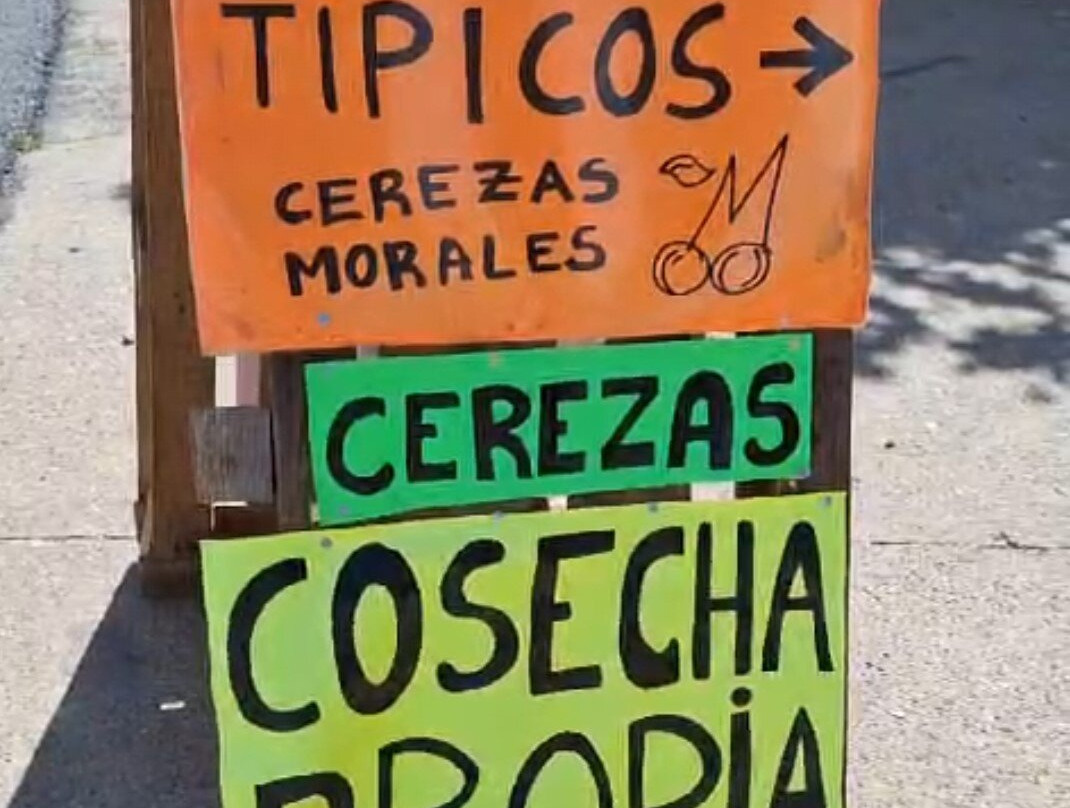 TIPICOS →
CEREZAS
MORALES
CEREZAS
COSECHA
PROPiA